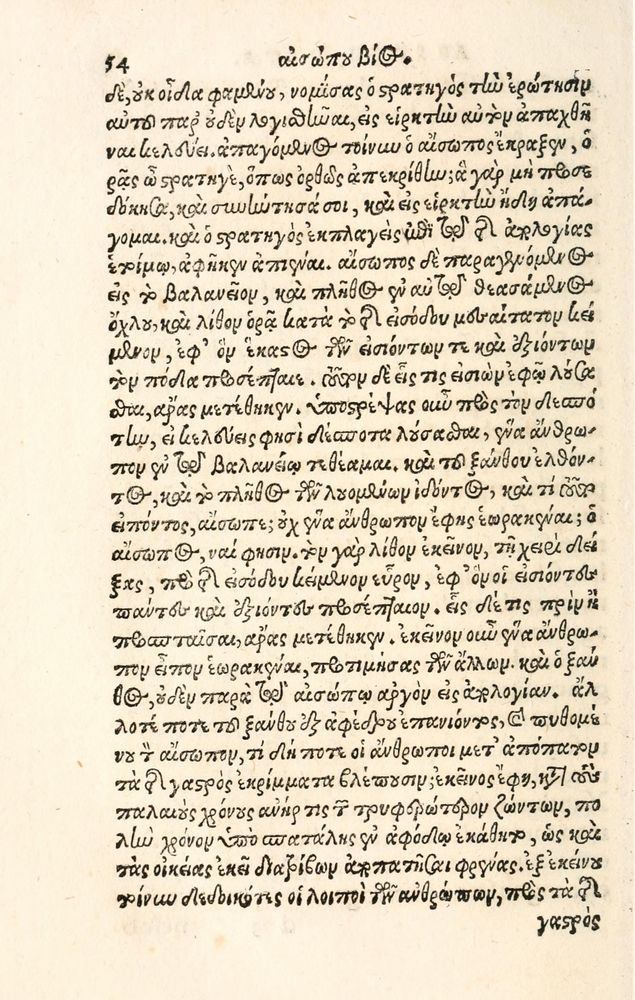 54 αἰσώπου βίος.
δὲ, οὐκ οἶδα φαμένου, νομίσας ὁ στρατηγὸς τὴν ἐρώτησιν
αὐτοῦ παρ' οὐδὲν λογισθῆναι, εἰς εἱρκτὴν αὐτὸν ἀπαχθῆ
ναι κελεύει. ἀπαγόμενος τοίνυν ὁ αἴσωπος ἔκραξεν, ὁ
ρᾷς ὦ στρατηγὲ, ὅπως ὀρθῶς ἀπεκρίθην; ἃ γὰρ μὴ προσε
δόκησα, καὶ συνήντησά σοι, καὶ εἰς εἱρκτὴν ἤδη ἀπά-
γομαι. καὶ ὁ στρατηγὸς ἐκπλαγεὶς ἐπὶ τῷ τῆς ἀπολογίας
ἑτοίμῳ, ἀφῆκεν ἀπιέναι. αἴσωπος δὲ παραγενόμενος
εἰς τὸ βαλανεῖον, καὶ πλῆθος ἐν αὐτῷ θεασάμενος
ὄχλου, καὶ λίθον ὁρᾷ κατὰ τὸ τῆς εἰσόδου μεσαίτατον κεί
μενον, ἐφ' ὃν ἕκαστος τῶν εἰσιόντων τε καὶ ἐξιόντων
τὸν πόδα προσέπταιε. τοῦτον δὲ εἷς τις εἰσιὼν ἐφ' ᾧ λούσα
σθαι, ἄρας μετέθηκεν. ὑποστρέψας οὖν πρὸς τὸν δεσπό
την, εἰ κελεύεις φησὶ δέσποτα λούσασθαι, ἕνα ἄνθρω-
πον ἐν τῷ βαλανείῳ τεθέαμαι. καὶ τοῦ ξάνθου ἐλθόν-
τος, καὶ τὸ πλῆθος τῶν λουομένων ἰδόντος, καὶ τί τοῦτο
εἰπόντος, αἴσωπε; οὐχ ἕνα ἄνθρωπον ἔφης ἑωρακέναι; ὁ
αἴσωπος, ναί φησιν. τὸν γὰρ λίθον ἐκεῖνον, τῇ χειρὶ δεί
ξας, πρὸ τῆς εἰσόδου κείμενον εὗρον, ἐφ' ὃν οἱ εἰσιόντες
πάντες καὶ ἐξιόντες προσέπταιον. εἷς δέ τις πρὶν ἢ
προσπταῖσαι, ἄρας μετέθηκεν. ἐκεῖνον οὖν ἕνα ἄνθρω-
πον εἶπον ἑωρακέναι, προτιμήσας τῶν ἄλλων. καὶ ὁ ξάν
θος, οὐδὲν παρὰ τῷ αἰσώπῳ ἀργὸν εἰς ἀπολογίαν. ἄλ
λοτέ ποτε τοῦ ξάνθου ἐξ ἀφέδρου ἐπανιόντος, καὶ πυθομέ
νου τὸν αἴσωπον, τί δή ποτε οἱ ἄνθρωποι μετ' ἀπόπατον
τὰ τῆς γαστρὸς ἐκκρίμματα βλέπουσιν; ἐκεῖνος ἔφη, κατὰ τοὺς
παλαιοὺς χρόνους ἀνήρ τις τῶν τρυφερώτερον ζώντων, πο
λὺν χρόνον ὑπὸ σπατάλης ἐν ἀφόδῳ ἐκάθητο, ὡς καὶ
τὰς οἰκείας ἐκεῖ διατρίβων ἀποπατῆσαι φρένας. ἐξ ἐκείνου
τοίνυν δεδοικότες οἱ λοιποὶ τῶν ἀνθρώπων, πρὸς τὰ τῆς
γαστρὸς